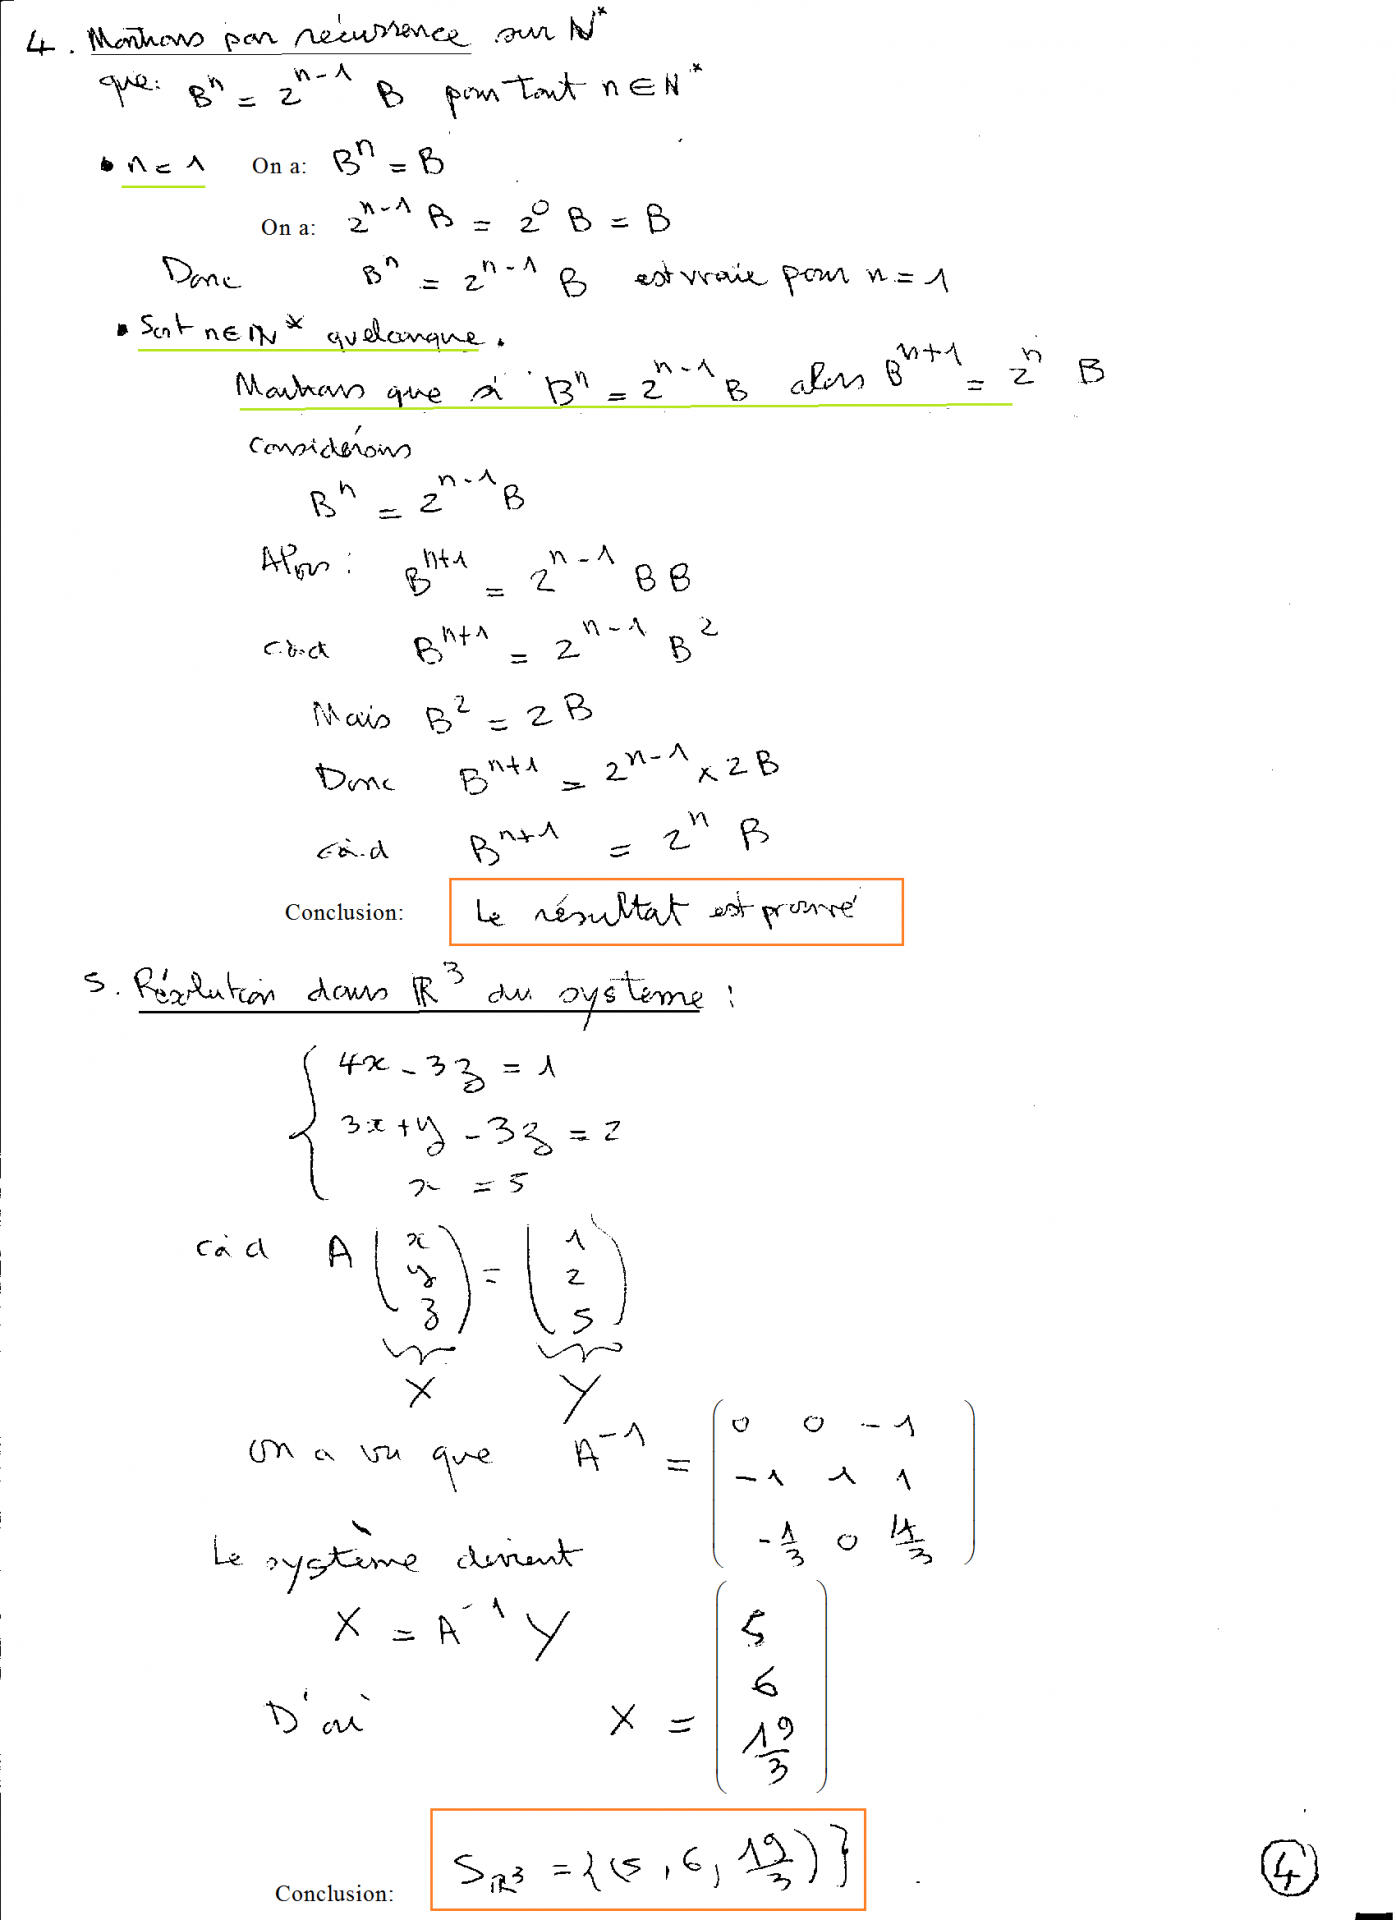 4. Montrons par récurrence sur N*
que: Bⁿ = 2ⁿ⁻¹ B pour tout n ∈ N*
• n = 1 On a: Bⁿ = B
On a: 2ⁿ⁻¹ B = 2⁰ B = B
Donc Bⁿ = 2ⁿ⁻¹ B est vraie pour n = 1
• Soit n ∈ N* quelconque.
Montrons que si Bⁿ = 2ⁿ⁻¹ B alors Bⁿ⁺¹ = 2ⁿ B
Considérons
Bⁿ = 2ⁿ⁻¹ B
Alors : Bⁿ⁺¹ = 2ⁿ⁻¹ B B
càd Bⁿ⁺¹ = 2ⁿ⁻¹ B²
Mais B² = 2 B
Donc Bⁿ⁺¹ = 2ⁿ⁻¹ × 2 B
cà.d Bⁿ⁺¹ = 2ⁿ B
Conclusion: Le résultat est prouvé
5. Résolution dans ℝ³ du système :
4x - 3z = 1
3x + y - 3z = 2
x = 5
càd A (x y z) = (1 2 5)
X Y
on a vu que A⁻¹ =
0 0 -1
-1 1 1
-1/3 0 4/3
Le système devient
X = A⁻¹ Y
D'où X = (5 6 19/3)
Conclusion: S_ℝ³ = {(5, 6, 19/3)}
4